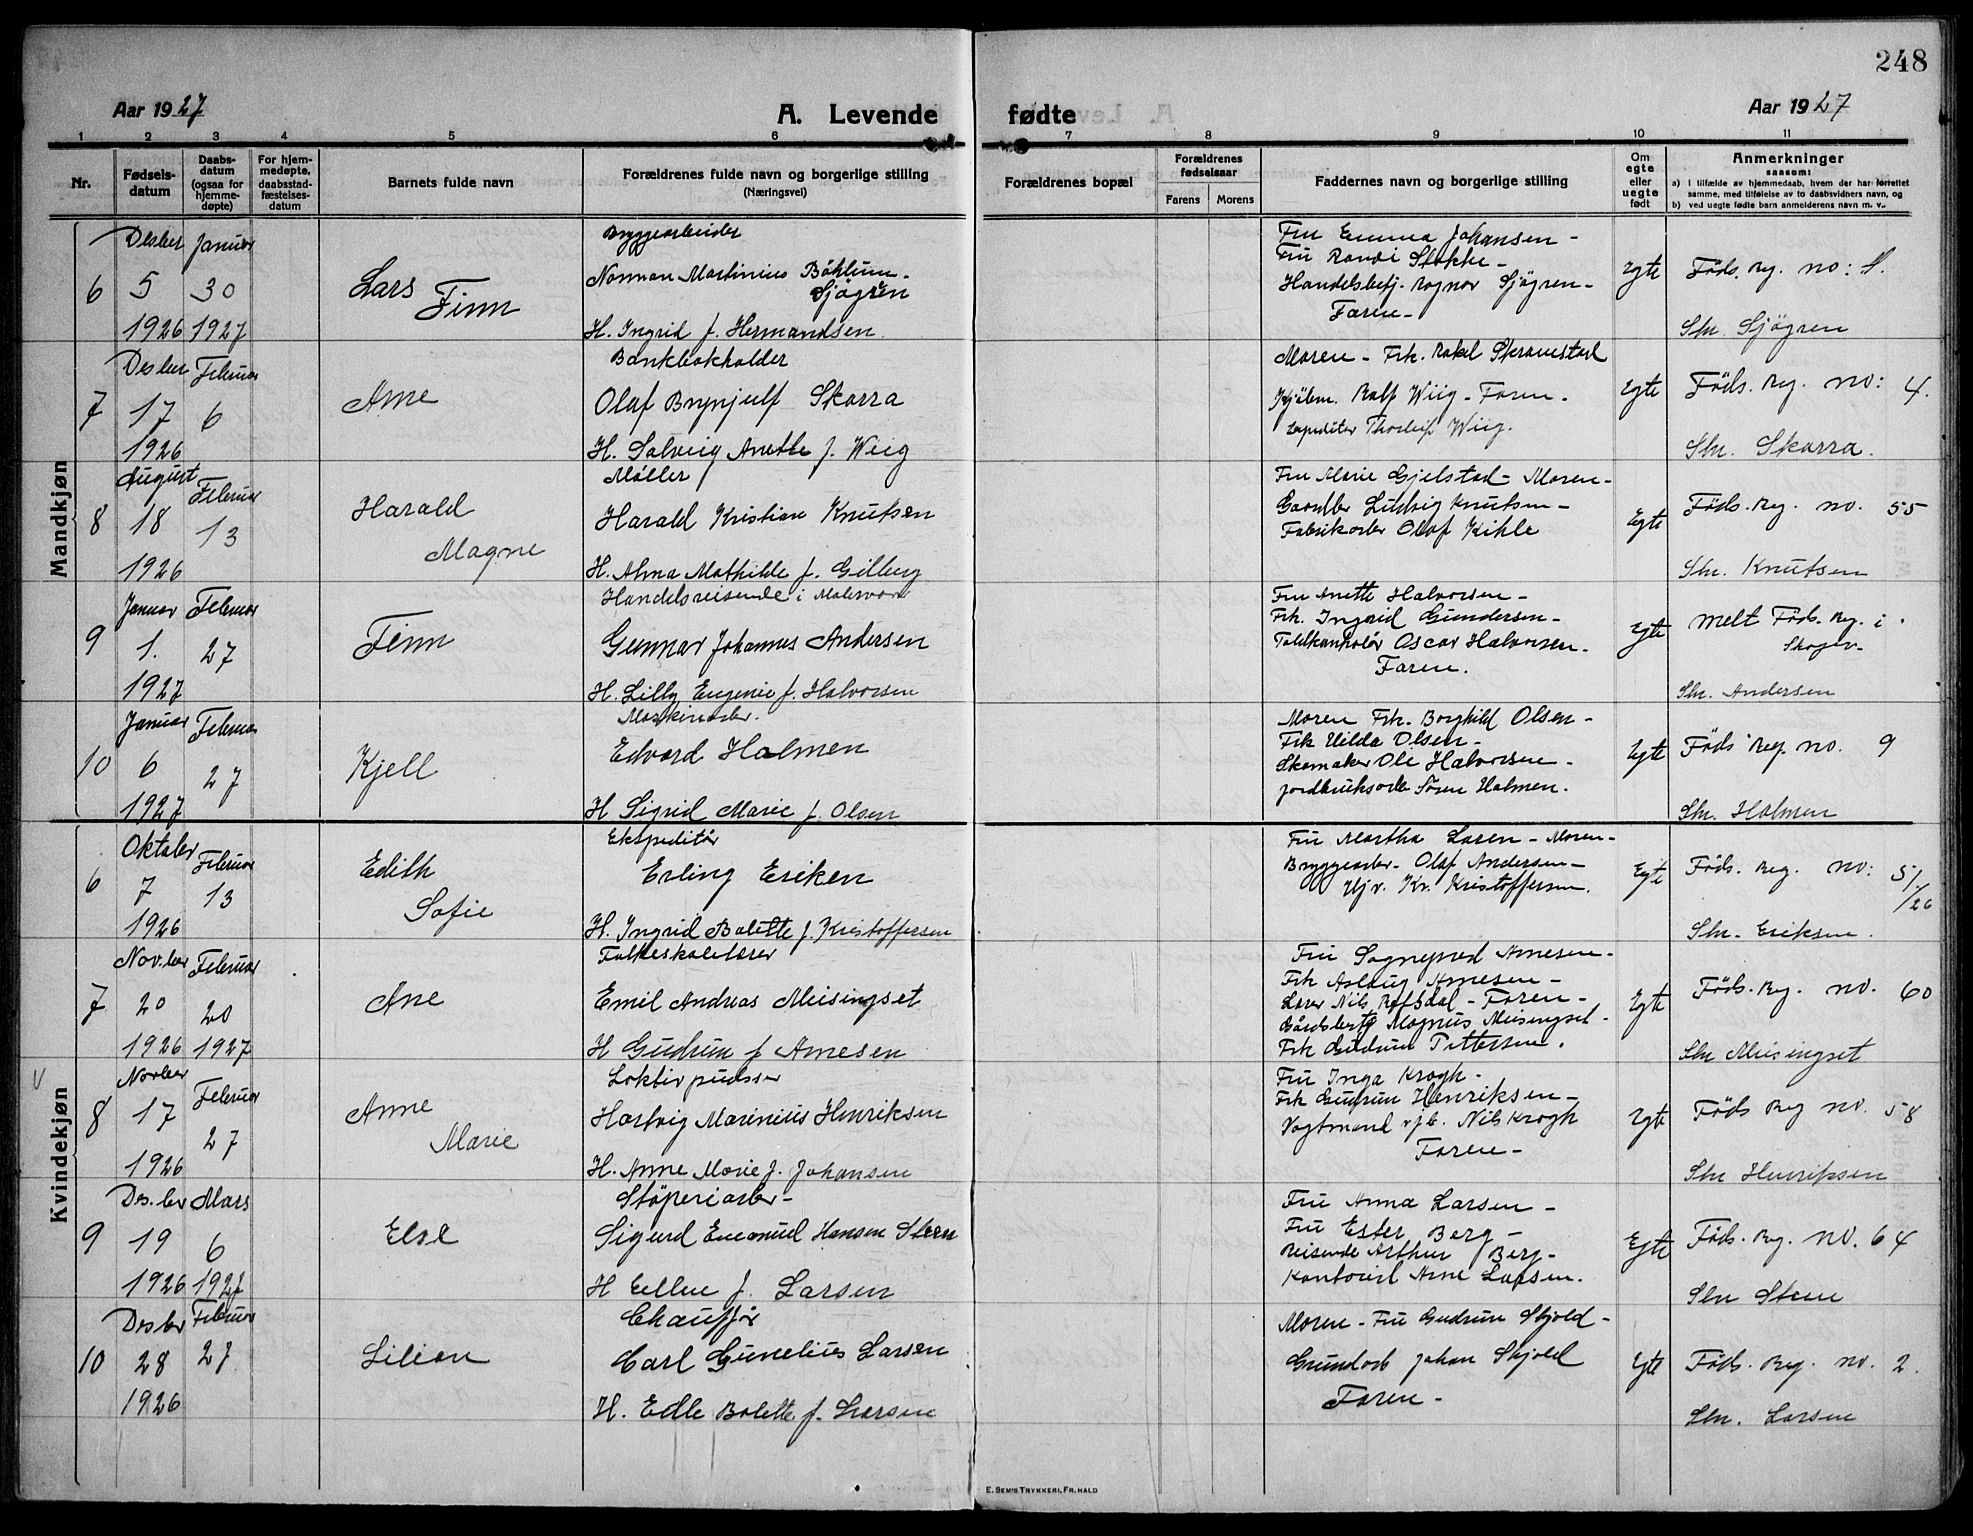 248
Aar 1927
A. Levende fødte
Aar 1927
1 2 3 4 5 6 7 8 9 10 11
Nr.
Fødsels-
datum
Daabs-
datum
(ogsaa for
hjemme-
døpte)
For hjem-
medøpte,
daabsstad-
fæstelses-
datum
Barnets fulde navn
Forældrenes fulde navn og borgerlige stilling
(Næringsvei)
Forældrenes bopæl
Forældrenes
fødselsaar
Farens Morens
Faddernes navn og borgerlige stilling
Om
egte
eller
uegte
født
Anmerkninger
saasom:
a) i tilfælde av hjemmedaab, hvem der har forrettet
samme, med tilføielse av to daabsvidners navn, og
b) ved uegte fødte barn anmelderens navn m. v..
Mandkjøn
6
Desber 5 1926
Januar 30 1927
Lars
Finn
Bryggearbeider
Norman Martinius Böhlum-
Sjøgren
H. Ingrid f. Hermandsen
Fru Emma Johansen -
Fru Randi Stokke -
Handelsbetj. Ragnar Sjøgren -
Faren -
Egte
Føds. Reg. no: 1.
Shr. Sjøgren
7
Desber 17 1926
Februar 6
Arne
Bankbokholder
Olaf Brynjulf Skarra
H. Solveig Anette f. Wiig
Moren - Frk. Rakel Skramstad
Kjølem. Ralf Wiig - Faren -
Expeditør Thorleif Wiig.
Egte
Føds. Reg. no: 4.
Shr. Skarra.
8
August 18 1926
Februar 13
Harald
Magne
Møller
Harald Kristian Knutsen
H. Alma Mathilde f. Gilberg
Fru Marie Gjelstad - Moren -
Gaardbr Ludvig Knutsen -
Fabrikarb Olaf Kihle
Egte
Føds. Reg. no. 55
Shr. Knutsen
9
Januar 1. 1927
Februar 27
Finn
Handelsreisende i Malervare
Gunnar Johannes Andersen
H. Lilly Eugenie f. Halvorsen
Fru Anette Halvorsen -
Frk. Ingrid Gundersen -
Toldkontolør Oscar Halvorsen.
Faren.
Egte
Melt Føds. Reg. i
Skoger
Shr. Andersen
10
Januar 6 1927
Februar 27
Kjell
Maskinarb.
Edvard Holmen
H Sigrid Marie f. Olsen
Moren Frk. Borghild Olsen -
Frk Hilda Olsen -
Skomaker Ole Halvorsen -
Jordbruksarb Søren Holmen.
Egte
Føds Reg no. 9
Shr. Holmen
Kvindekjøn
6
Oktober 7 1926
Februar 13
Edith
Sofie
Ekspeditør
Erling Eriken
H. Ingrid Bolette f. Kristoffersen
Fru Martha Loren - Moren -
Bryggearb. Olaf Andersen -
Hjv. Kr. Kristoffersen.
Egte
Føds. Reg. no: 51/26
Shr. Eriksen.
7
Nov.ber 20 1926
Februar 20 1927
Ane
Folkeskolelærer
Emil Andreas Meisingset
H Gudrun f Arnesen
Fru Sogneprest Arnesen -
Frk Aslaug Arnesen -
Lærer Nils Roksdal - Faren -
Gårdsbest Magnus Meisingset -
Frk Gudrun Pettersen.
Egte
Føds. Reg. no. 60
Shr Meisingset
8
Novber 17 1926
Februar 27
Anne
Marie
Loktivpudser
Hartvig Marinius Henriksen
H. Anne Marie f. Johansen
Fru Inga Krogh -
Frk Gudrun Henriksen -
Vogtmand v/jb. Nils Krogh
Faren -
Egte
Føds Reg no. 58
Shr Henriksen
9
Des.ber 19 1926
Mars 6 1927
Else
Støperiarb -
Sigurd Emanuel Hansen Steen
H Ellen f. Larsen
Fru Anna Larsen -
Fru Ester Berg -
Reisende Arthur Berg -
Kontorist Arne Larsen.
Egte
Føds. Reg. no. 64
Shr Steen
10
Desber 28 1926
Februar 27
Lilian
Chauffør
Carl Gunelius Larsen
H. Edle Bolette f. Larsen
Moren - Fru Gudrun Skjold -
Grundarb Johan Skjold
Faren -
Egte
Føds. Reg. no. 2.
Shr. Larsen
E. SEM'S TRYKKERI, FR.HALD